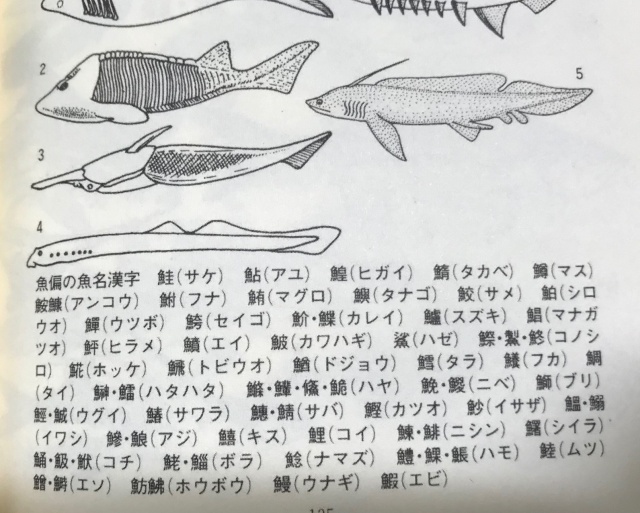 2
5
3
4
魚偏の魚名漢字 鮭(サケ) 鮎(アユ) 鰉(ヒガイ) (タカベ) 鱒(マス)
鮟鱇(アンコウ) 鮒(フナ) 鮪(マグロ) (タナゴ) 鮫(サメ) 鮊(シロ
ウオ) (ウツボ) 鮬(セイゴ) 魪・鰈(カレイ) 鱸(スズキ) 鯧(マナガ
ツオ) (ヒラメ) (エイ) 鮍(カワハギ) 鯊(ハゼ) (コノシ
ロ) (ホッケ) (トビウオ) 鰌(ドジョウ) 鱈(タラ) (フカ) 鯛
(タイ) ・鱩(ハタハタ) (ハヤ) (ニベ) 鰤(ブリ)
(ウグイ) 鰆(サワラ) ・鯖(サバ) 鰹(カツオ) 魦(イサザ) 鰮・鰯
(イワシ) 鰺・(アジ) 鱚(キス) 鯉(コイ) 鰊・鯡(ニシン) (シイラ)
(コチ) ・鯔(ボラ) 鯰(ナマズ) 鱧・(ハモ) 鯥(ムツ)
(エソ) 魴鮄(ホウボウ) 鰻(ウナギ) 鰕(エビ)